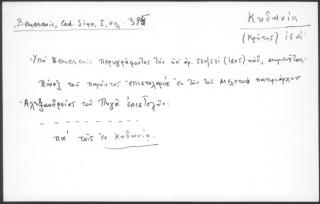 Benesevic, Cod. Sina, I, σελ. 385
Κυδωνία
(Κρήτης) ις αἰ.
Ὑπὸ Benesevic περιγράφοντος τὸν ὑπ' ἀρ. 530/531 (1605) κώδ.
Πίναξ τοῦ παρόντος ἐπιστολαρίου ἐκ τῶν τοῦ Μελετίου πατριάρχου
Ἀλεξανδρείας τοῦ Πηγᾶ ἐπιστολῶν:
- - - - - - - - - -
πα' τοῖς ἐν Κυδωνίᾳ.